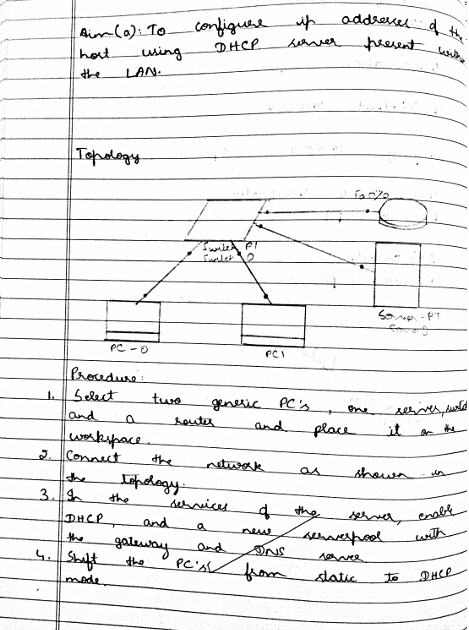 Aim (a): To configure ip addresses of the
host using DHCP server present within
the LAN.
Topology
Fa0/0
Switch PT
Switch 0
Server-PT
PC-0
PC1
Procedure:
1. Select two generic PC's, one server, switch
and a router and place it on the
workspace.
2. Connect the network as shown in
the topology.
3. In the services of the server, enable
DHCP, and a new serverpool with
the gateway and DNS server
4. Shift the PC's from static to DHCP
mode.